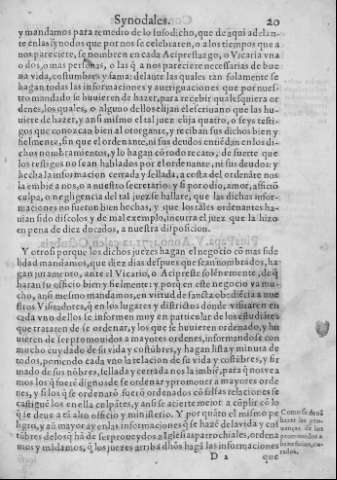 Synodales. 20
y mandamos para remedio de lo susodicho, que de aqui adelan-
te en las synodos que por nos se celebraren, o a los tiempos que a
nos pareciere, se nombren en cada Aciprestazgo, o Vicaria vna
o dos, o mas personas, o las q̃ a nos pareciere necessarias de bue
na vida, costumbres y fama: delante las quales tan solamente se
hagan todas las informaciones y aueriguaciones que por nues-
tro mandado se huuieren de hazer, para recebir qualesquiera or
denes, los quales, o alguno dellos elijan el escriuano que las hu-
uiere de hazer, y ansi mismo el tal juez elija quatro, o seys testi-
gos que conozcan bien al otorgante, y reciban sus dichos bien y
fielmente, sin que el ordenante, ni sus deudos entiēdan en los di-
chos nombramientos, y lo hagan cō todo recato, de suerte que
los testigos no sean hablados por el ordenante, ni sus deudos: y
hecha la informacion cerrada y sellada, a costa del ordenāte nos
la embie a nos, o a nuestro secretario: y si por odio, amor, afficiō
culpa, o negligencia del tal juez se hallare, que las dichas infor-
maciones no fueron bien hechas, y que los tales ordenantes ha-
uian sido discolos y de mal exemplo, incurra el juez que la hizo
en pena de diez docados, a nuestra disposicion.
Y otrosi porque los dichos juezes hagan el negocio cō mas fide
lidad mandamos, que diez dias despues que sean nombrados, ha-
gan juramento, ante el Vicario, o Acipreste solēnemente, de q̃
haran su officio bien y fielmente: y porq̃ en este negocio va mu-
cho, ansi mesmo mandamos, en virtud de sancta obediēcia a nue
stros Visitadores, q̃ en los lugares y districtos dōnde visitaren en
cada vno dellos se informen muy en particular de los estudiātes
que trataren de se ordenar, y los que se huuieren ordenado, y hu
uieren de ser promouidos a mayores ordenes, informandose con
mucho cuydado de su vida y costūbres, y hagan lista y minuta de
todos, poniendo cada vno la relacion de su vida y costūbres, y fir
mado de sus nōbres, sellada y cerrada nos la imbiē, para q̃ nos vea
mos los q̃ fuerē dignos de se ordenar y promouer a mayores orde
nes, y si los q̃ se ordenarō fuerō ordenados cō falsas relaciones se
castiguē los en ella culpātes, y ansi se acierte mejor a cūplir cō lo
q̃ se deue a tā alto officio y ministerio. Y por quāto el mismo pe
ligro, y aū mayor ay en las informaciones q̃ se hazē de la vida y cos
tūbres de los q̃ hā de ser proueydos a Iglesias parrochiales, ordena
mos y mādamos, q̃ los juezes arriba dhōs hagā las informaciones
Como se deuē
hazer las pro-
uanças de los
promouidos a
beneficios, cu-
rados.
D 2 que